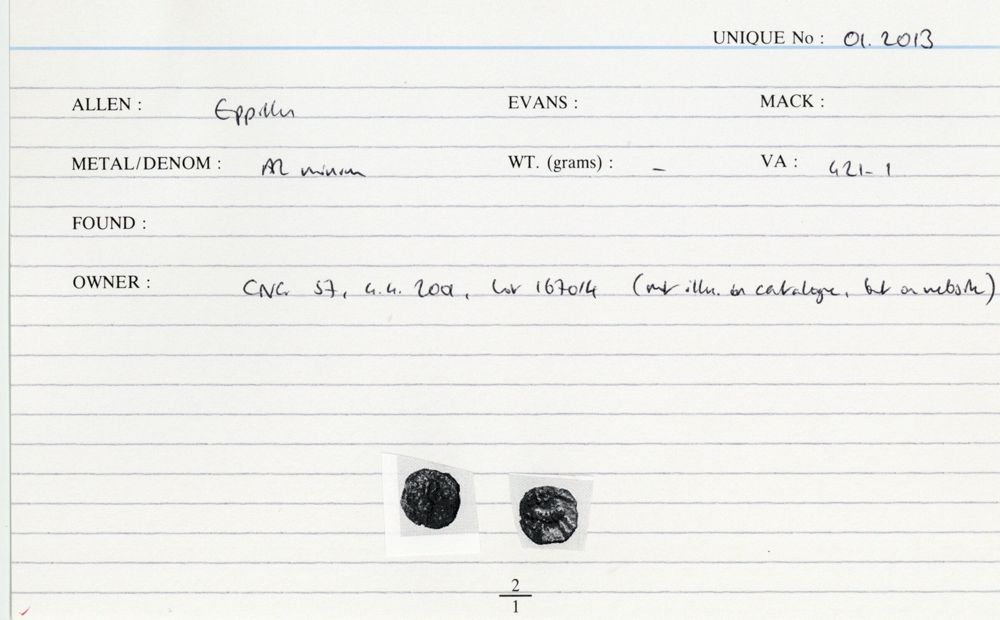 UNIQUE No : 01. 2013
ALLEN : Eppillus EVANS : MACK :
METAL/DENOM : AR minim WT. (grams) : – VA : 421-1
FOUND :
OWNER : CNG 57, 4.4. 2001, Lot 167014 (not illu. in catalogue, but on website)
2
1